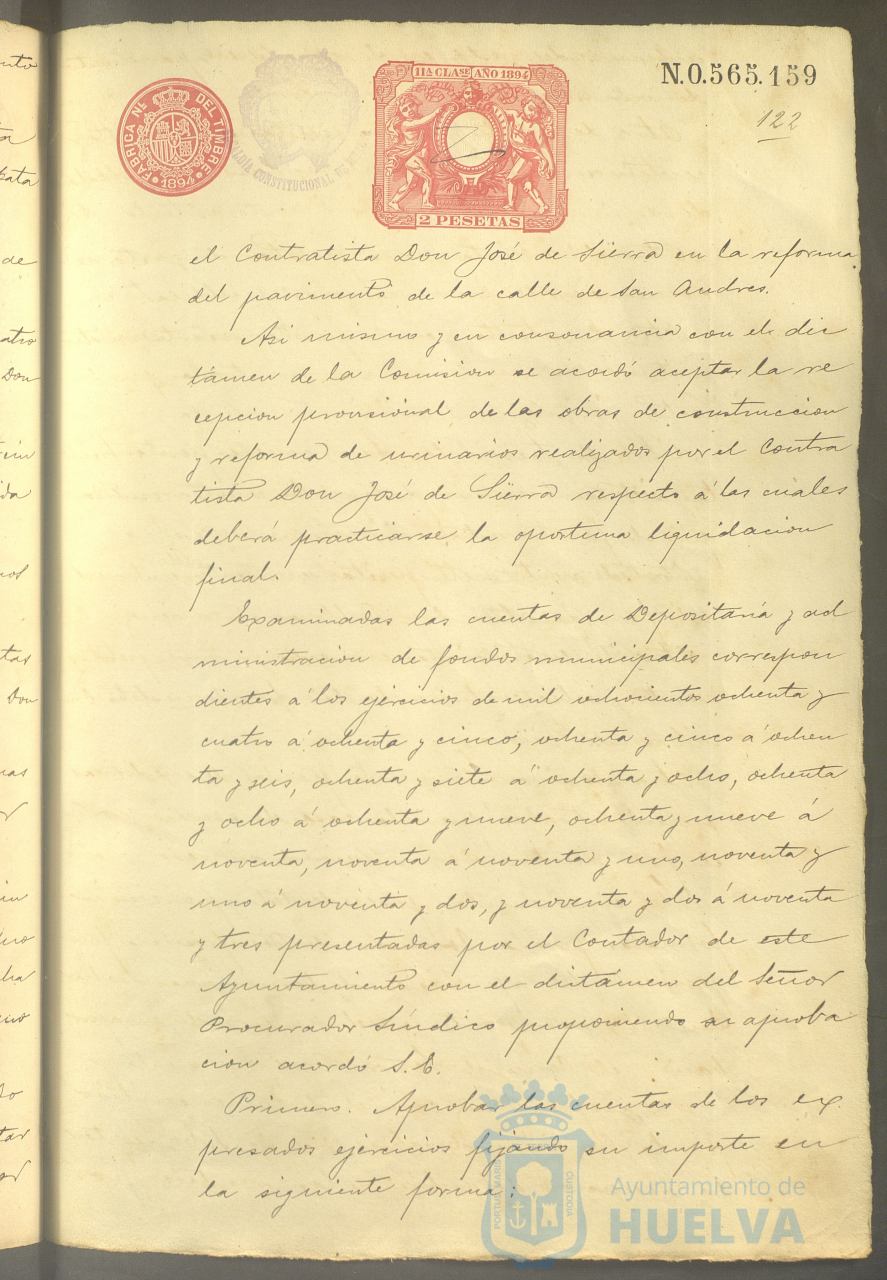 FABRICA NL. DEL TIMBRE
1894
ALCALDIA CONSTITUCIONAL DE
11A CLASE AÑO 1894
2 PESETAS
N.0.565.159
122
el Contratista Don José de Sierra en la reforma
del pavimento de la calle de San Andres.
Asi mismo y en consonancia con el dic
támen de la Comision se acordó aceptar la re
cepcion provisional de las obras de construccion
y reforma de urinarios realizados por el Contra
tista Don José de Sierra respecto á las cuales
deberá practicarse la oportuna liquidacion
final.
Examinadas las cuentas de Depositaría y ad
ministracion de fondos municipales correspon
dientes á los ejercicios de mil ochocientos ochenta y
cuatro á ochenta y cinco, ochenta y cinco á ochen
ta y seis, ochenta y siete á ochenta y ocho, ochenta
y ocho á ochenta y nueve, ochenta y nueve á
noventa, noventa á noventa y uno, noventa y
uno á noventa y dos, y noventa y dos á noventa
y tres presentadas por el Contador de este
Ayuntamiento con el dictámen del Señor
Procurador Síndico proponiendo su aproba
cion acordó S.E.
Primero. Aprobar las cuentas de los ex
presados ejercicios fijando su importe en
la siguiente forma:
PORTUS MARIS CUSTODIA
Ayuntamiento de
HUELVA